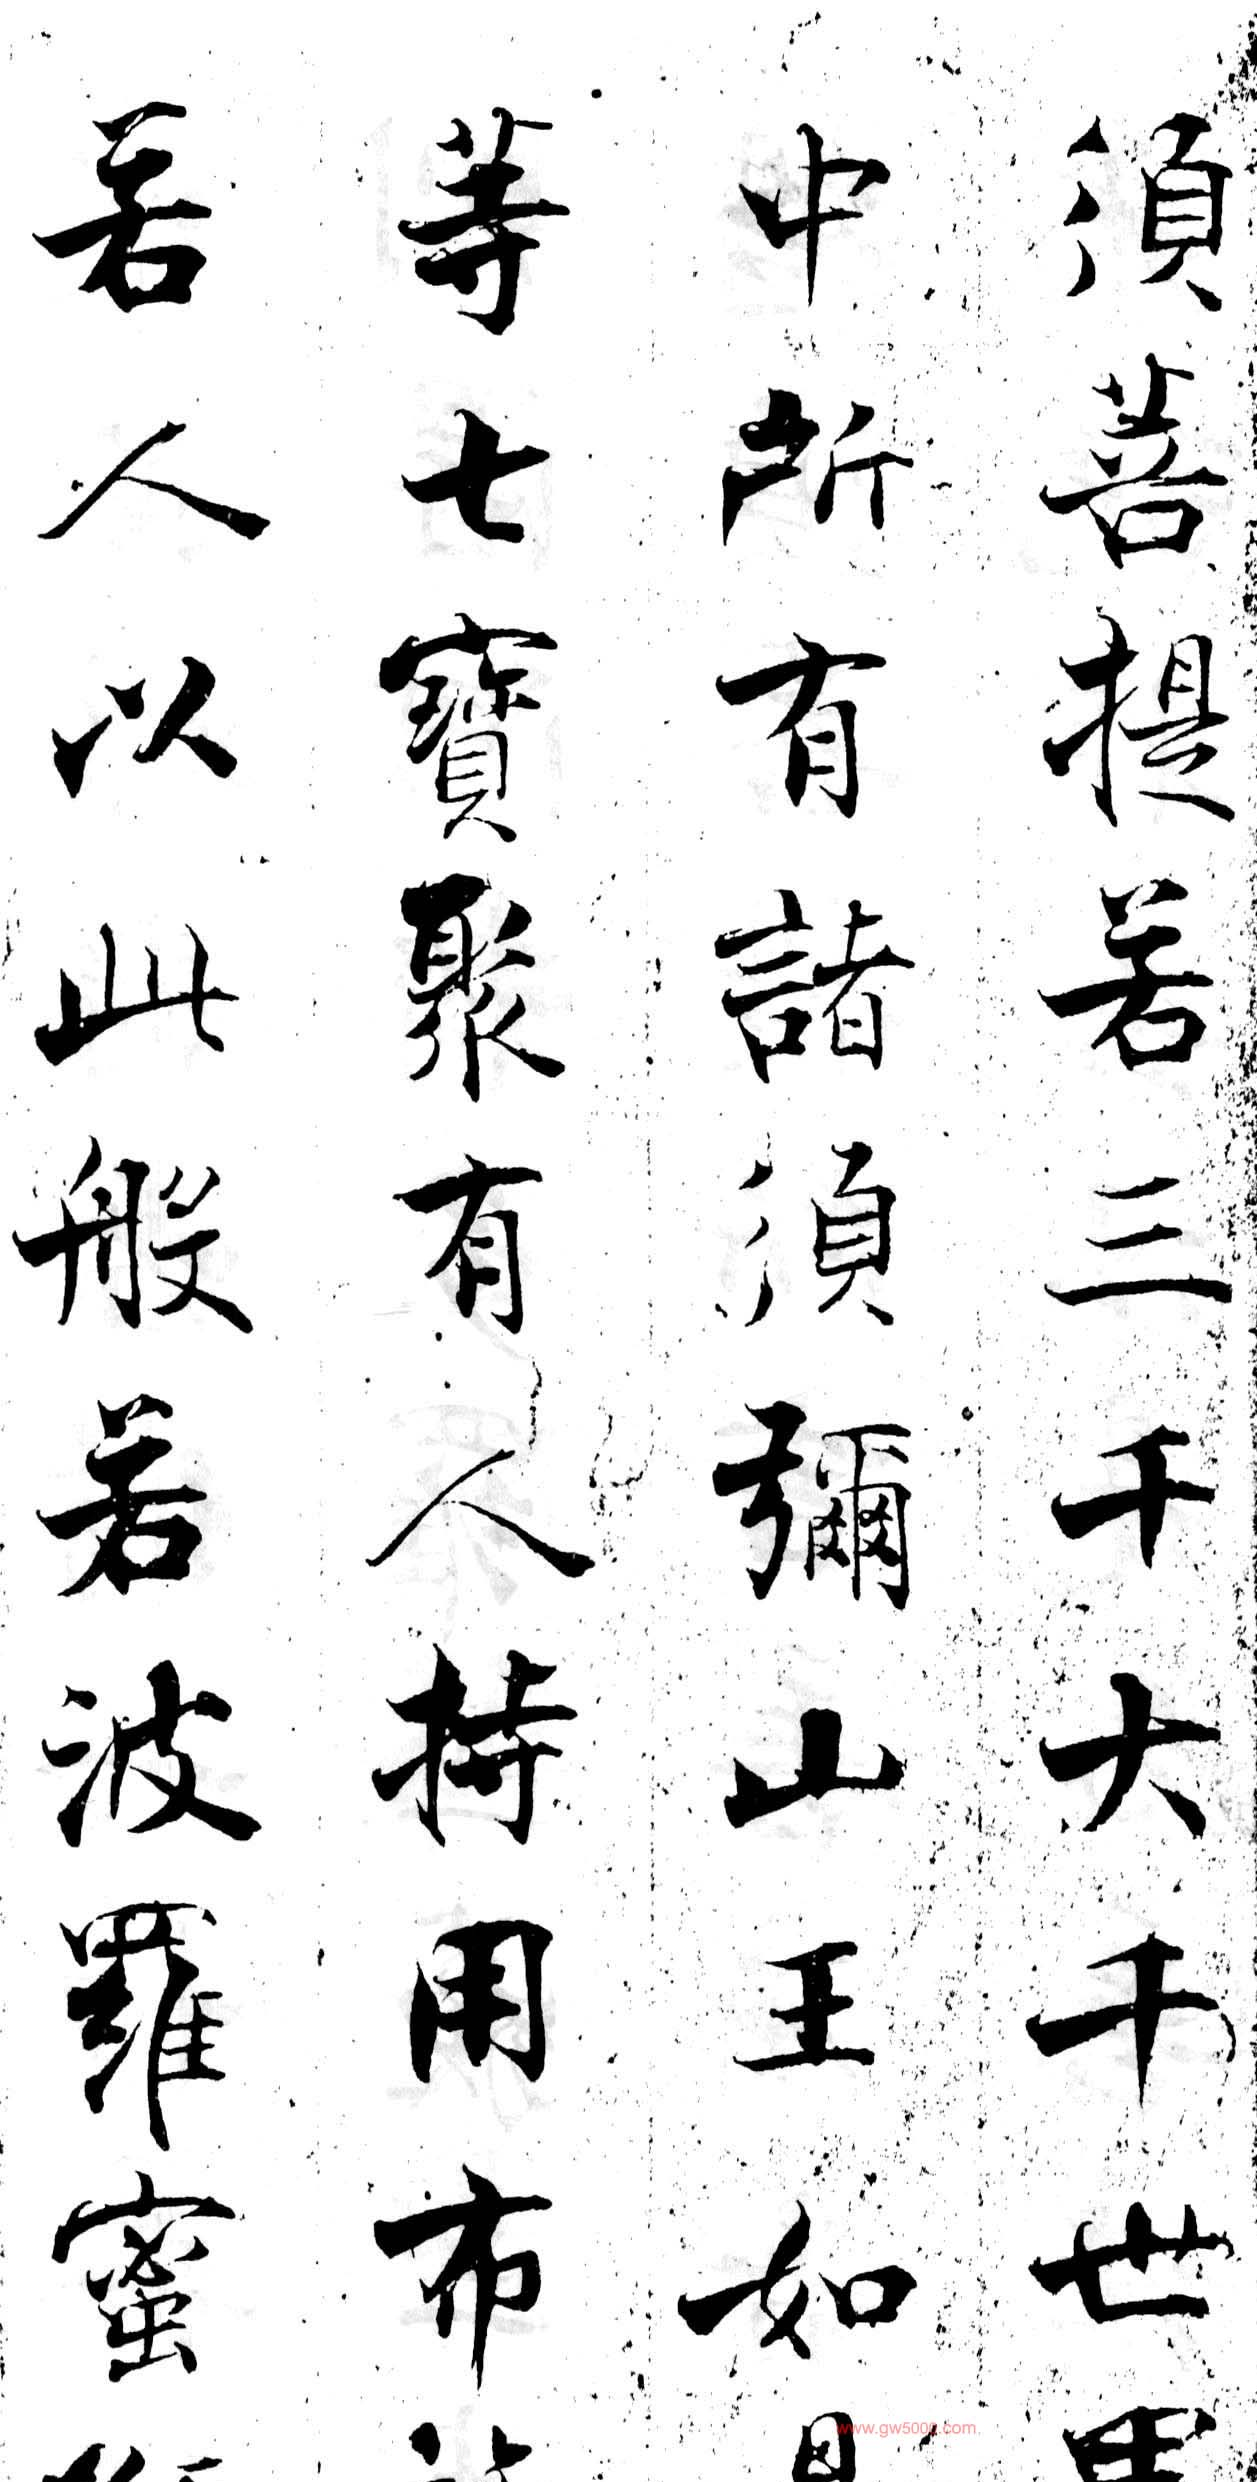 須菩提若三千大千世界
中所有諸須彌山王如是
等七寶聚有人持用布施
若人以此般若波羅蜜
www.gw5000.com